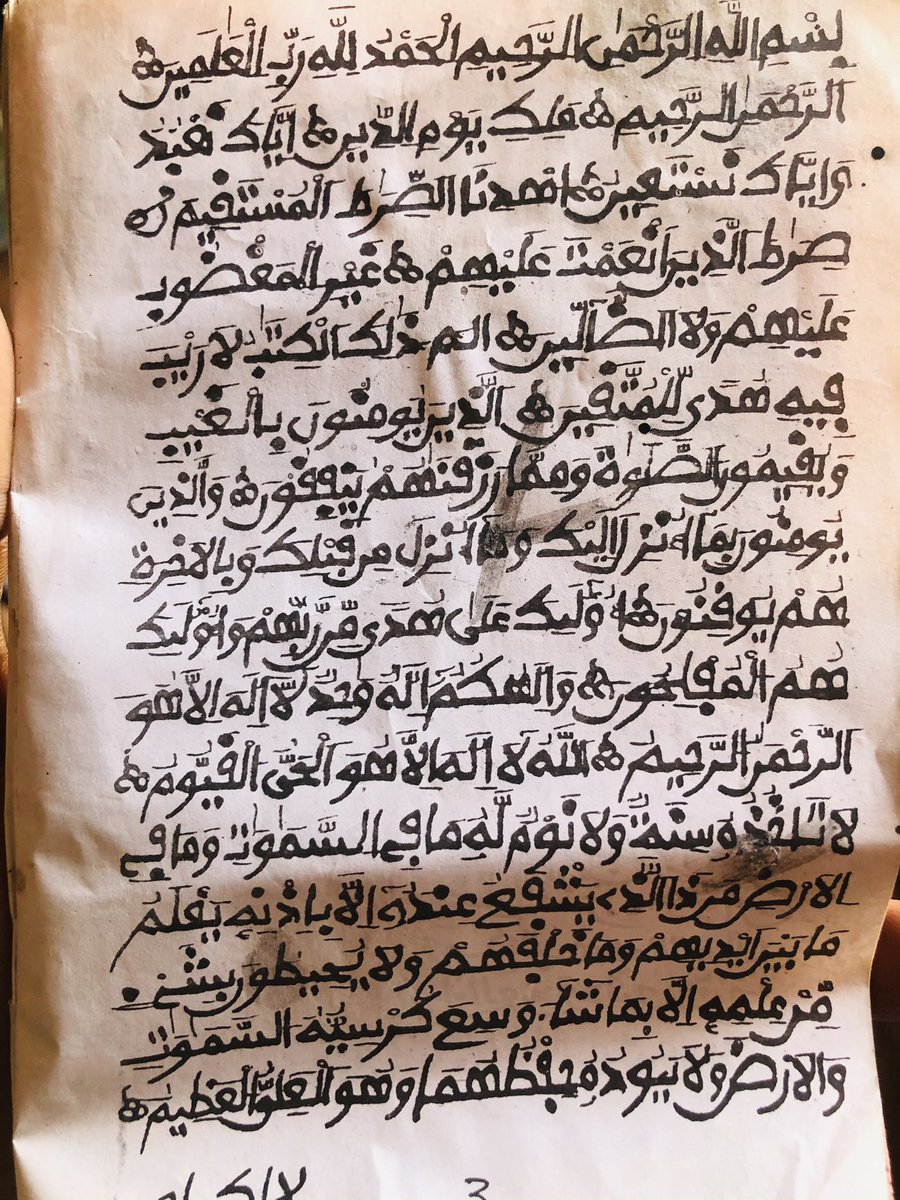 بِسْمِ اللَّهِ الرَّحْمَٰنِ الرَّحِيمِ الْحَمْدُ لِلَّهِ رَبِّ الْعَٰلَمِينَ ۝
الرَّحْمَٰنِ الرَّحِيمِ ۝ مَلِكِ يَوْمِ الدِّينِ ۝ إِيَّاكَ نَعْبُدُ
وَإِيَّاكَ نَسْتَعِينُ ۝ اهْدِنَا الصِّرَٰطَ الْمُسْتَقِيمَ ۝
صِرَٰطَ الَّذِينَ أَنْعَمْتَ عَلَيْهِمْ ۝ غَيْرِ الْمَغْضُوبِ
عَلَيْهِمْ وَلَا الضَّآلِّينَ ۝ الم ذَٰلِكَ الْكِتَٰبُ لَا رَيْبَ
فِيهِ هُدًى لِّلْمُتَّقِينَ ۝ الَّذِينَ يُومِنُونَ بِالْغَيْبِ
وَيُقِيمُونَ الصَّلَوٰةَ وَمِمَّا رَزَقْنَٰهُمْ يُنفِقُونَ ۝ وَالَّذِينَ
يُومِنُونَ بِمَا أُنزِلَ إِلَيْكَ وَمَا أُنزِلَ مِن قَبْلِكَ وَبِالْأَخِرَةِ
هُمْ يُوقِنُونَ ۝ أُوْلَٰئِكَ عَلَىٰ هُدًى مِّن رَّبِّهِمْ وَأُوْلَٰئِكَ
هُمُ الْمُفْلِحُونَ ۝ وَإِلَٰهُكُمْ إِلَٰهٌ وَٰحِدٌ لَّا إِلَٰهَ إِلَّا هُوَ
الرَّحْمَٰنُ الرَّحِيمُ ۝ اللَّهُ لَا إِلَٰهَ إِلَّا هُوَ الْحَيُّ الْقَيُّومُ ۝
لَا تَأْخُذُهُ سِنَةٌ وَلَا نَوْمٌ لَّهُ مَا فِي السَّمَٰوَٰتِ وَمَا فِي
الْأَرْضِ مَن ذَا الَّذِي يَشْفَعُ عِندَهُ إِلَّا بِإِذْنِهِ يَعْلَمُ
مَا بَيْنَ أَيْدِيهِمْ وَمَا خَلْفَهُمْ وَلَا يُحِيطُونَ بِشَيْءٍ
مِّنْ عِلْمِهِ إِلَّا بِمَا شَاءَ وَسِعَ كُرْسِيُّهُ السَّمَٰوَٰتِ
وَالْأَرْضَ وَلَا يَئُودُهُ حِفْظُهُمَا وَهُوَ الْعَلِيُّ الْعَظِيمُ ۝
3